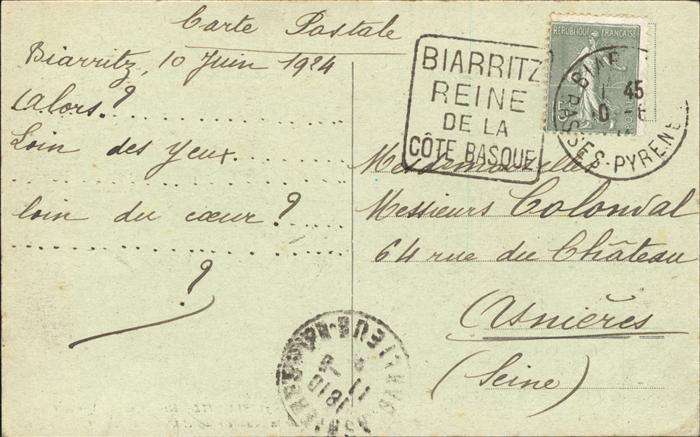 Carte Postale
Biarritz, 10 Juin 1924
Alors ?
Loin des yeux
loin du cœur ?
?
BIARRITZ
REINE
DE LA
CÔTE BASQUE
REPUBLIQUE FRANÇAISE
BIAR
45
BASSES-PYRENE
Mesdemoiselles
Messieurs Colonval
64 rue du Château
Asnières
(Seine)
1810
11